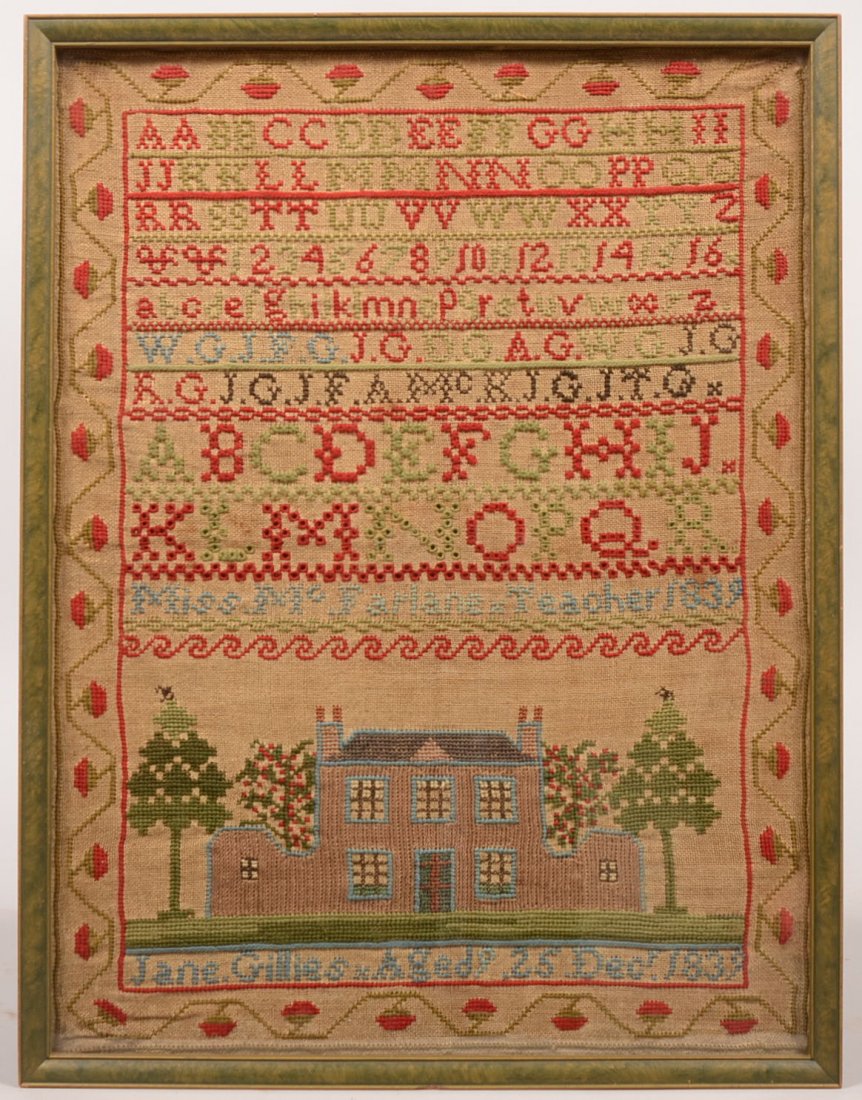 AABBCCDDEEFFGGHHII
JJKKLLMMNNOOPPQQ
RRSSTTUUVVWWXXYYZ
1 2 3 4 5 6 7 8 9 10 11 12 13 14 15 16
W.G.J.F.G.J.G.DG A.G.WG.J.G
R.G.J.G.JF.A.McK JG.J.T.G.x
ABCDEFGHIJ.x
KLMNOPQR
Miss.Mc.Farlane x Teacher 1839
Jane Gillies x Aged 9 25 Decr. 1839